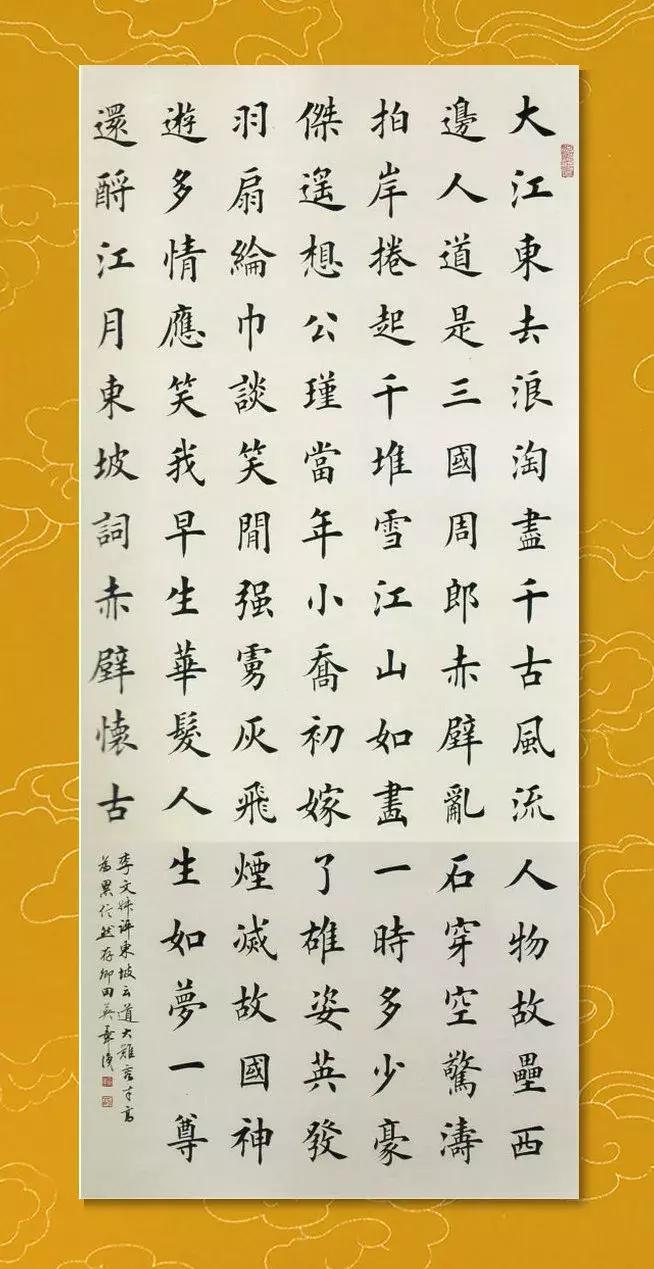 大江東去浪淘盡千古風流人物故壘西
邊人道是三國周郎赤壁亂石穿空驚濤
拍岸捲起千堆雪江山如畫一時多少豪
傑遙想公瑾當年小喬初嫁了雄姿英發
羽扇綸巾談笑閒强虜灰飛煙滅故國神
遊多情應笑我早生華髮人生如夢一尊
還酹江月東坡詞赤壁懷古
李文評東坡云道大難容才高
為累信然存卿田英章